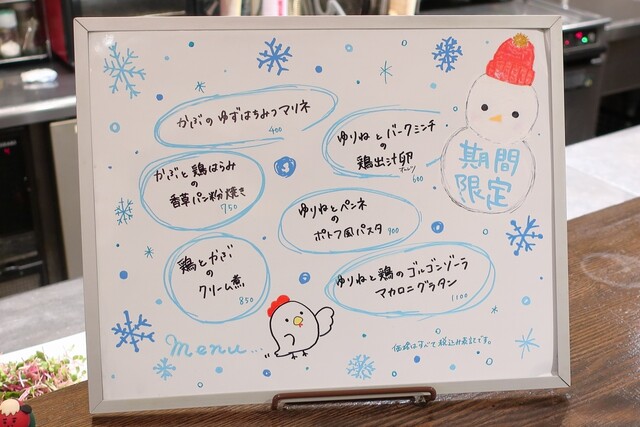 かぶのゆずはちみつマリネ
400
ゆりねとパークミンチ
の
鶏出汁卵
600
期間
限定
かぶと鶏はらみ
の
香草パン粉焼き
750
ゆりねとペンネ
の
ポトフ風パスタ
900
鶏とかぶ
の
クリーム煮
850
ゆりねと鶏のゴルゴンゾーラ
マカロニグラタン
1100
menu...
価格はすべて税込み表記です。